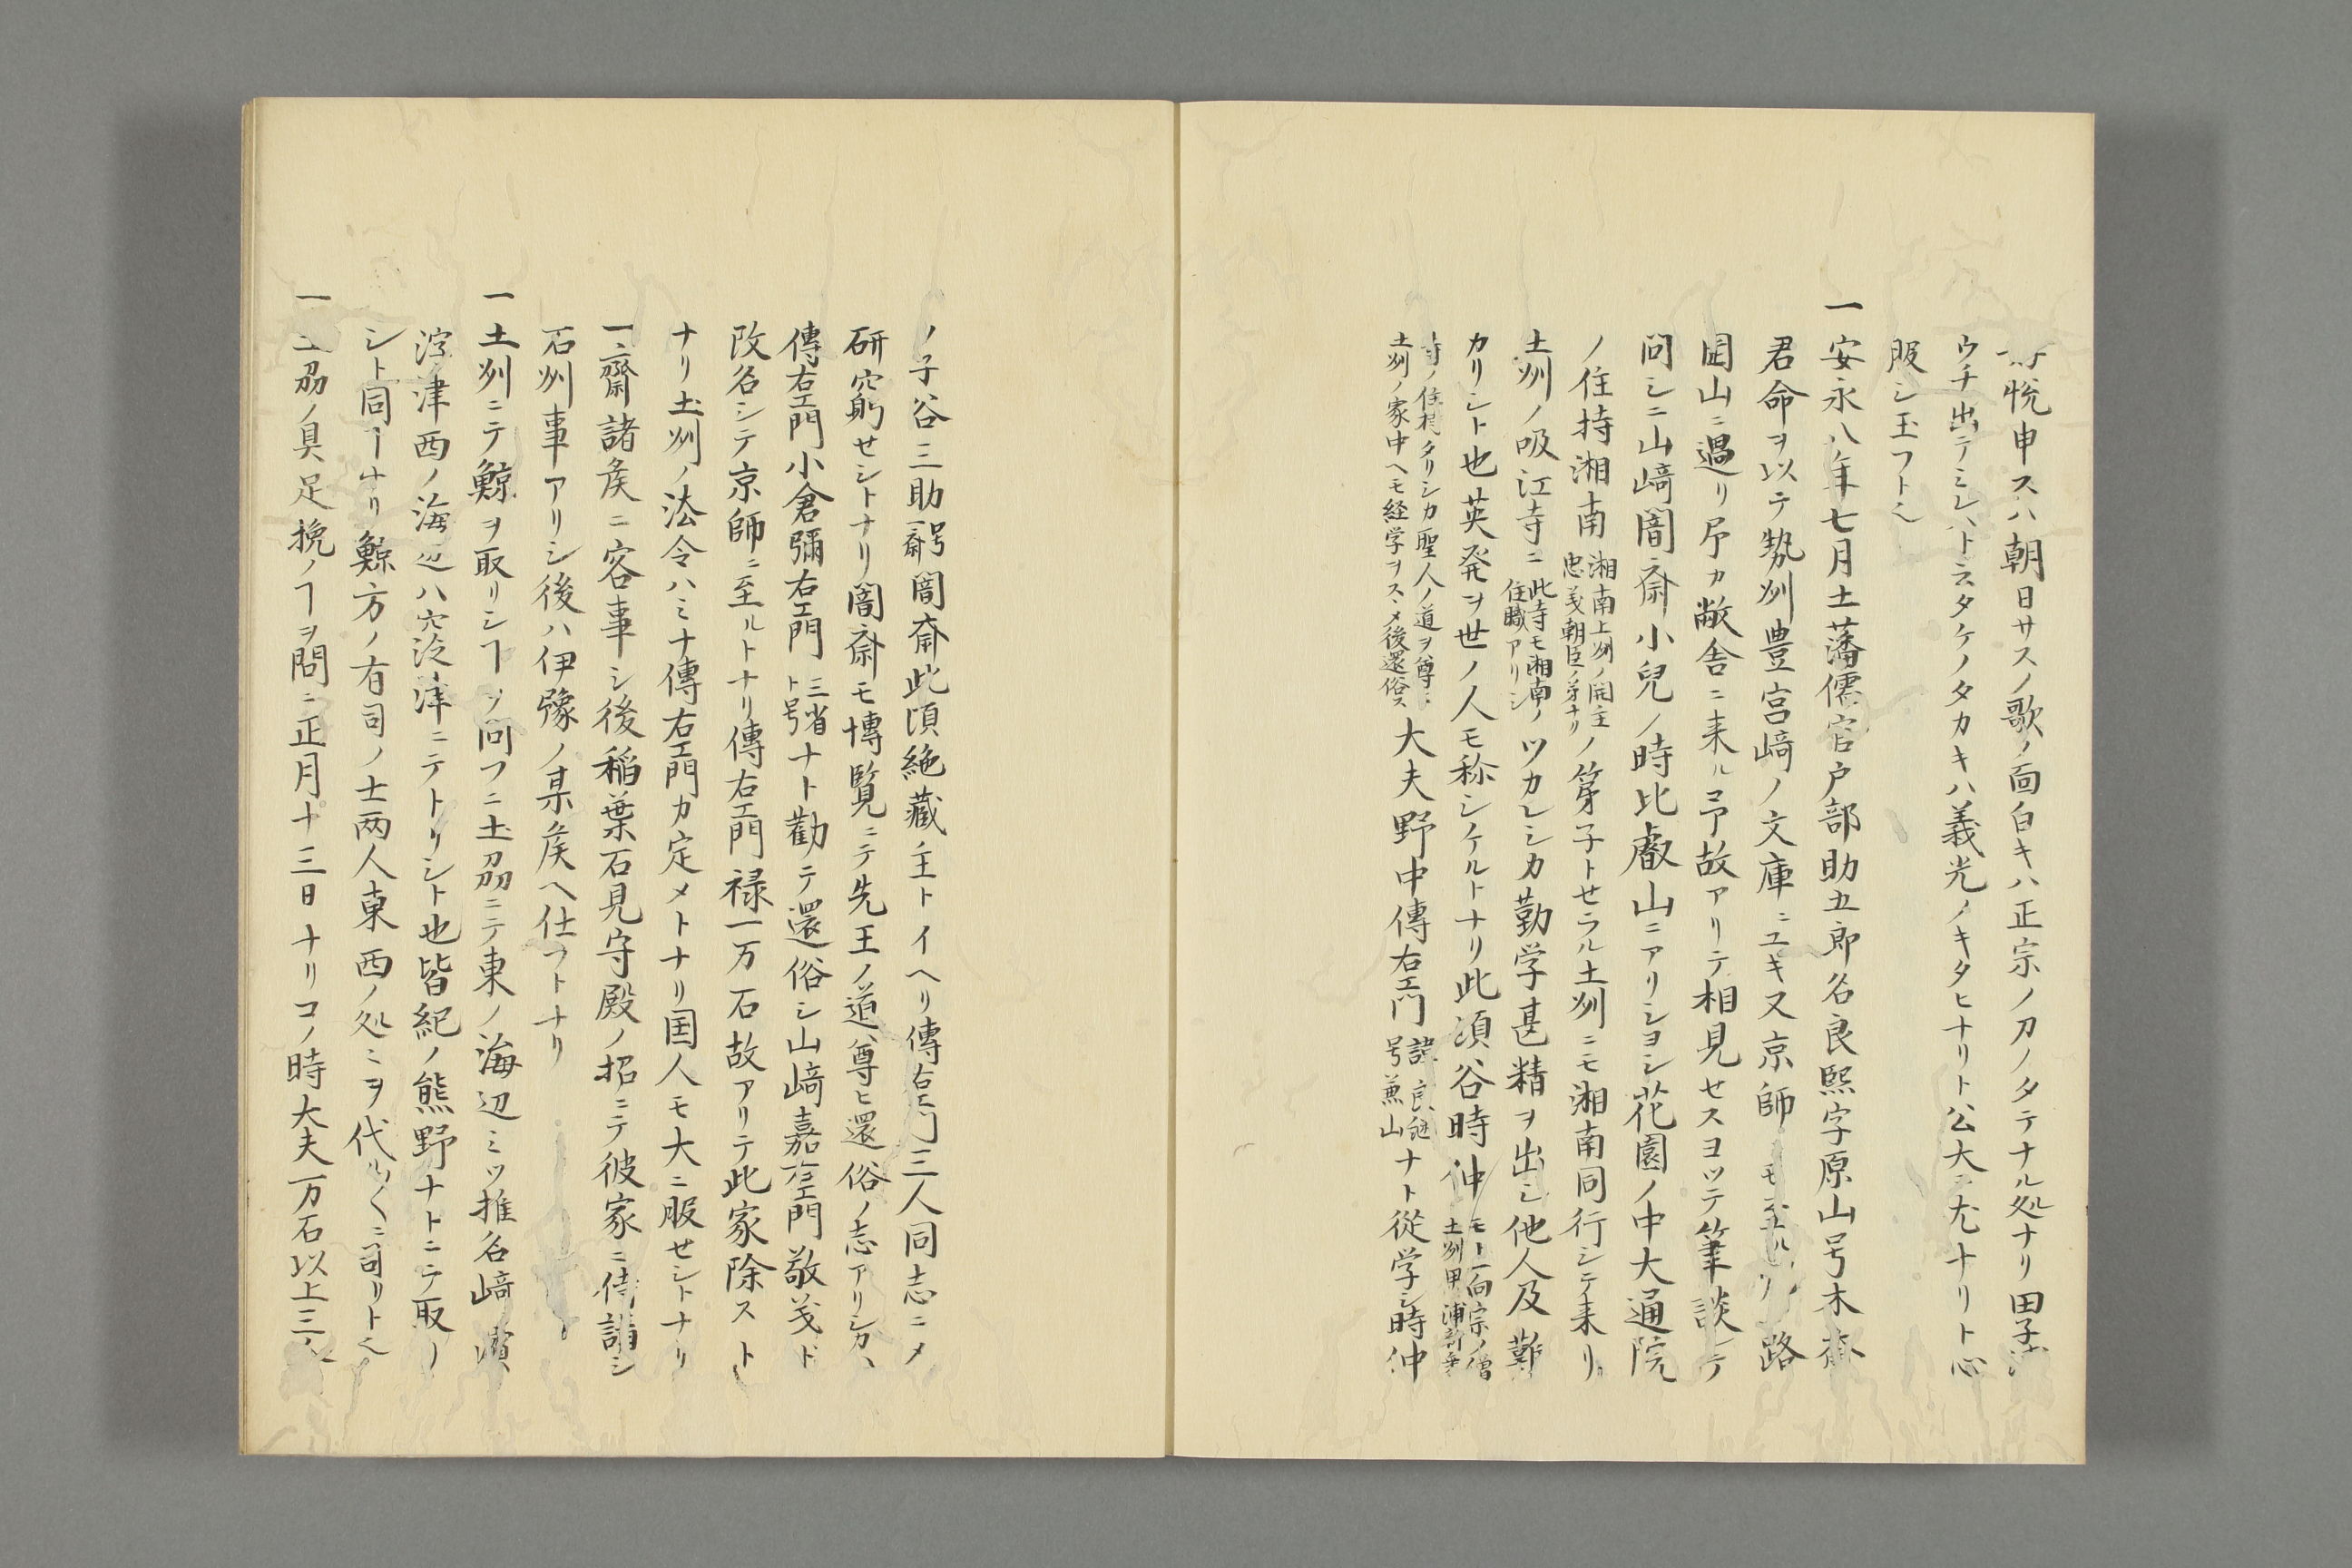 悦申スハ朝日サスノ歌ノ面白キハ正宗ノ刀ノタテナル処ナリ田子
ウチ出テミレハト云タケノタカキハ義光ノキタヒナリト公大ニ尤ナリト心
服シ玉フト也
一安永八年七月土藩儒官戸部助五郎名良熙字原山号木斎
君命ヲ以テ勢州豊宮﨑ノ文庫ニユキ又京師 モ至ル 路
囯山ニ過リ 敝舎ニ来ル予故アリテ相見セスヨツテ筆談シテ
問シニ山﨑闇斎小兒ノ時比叡山ニアリシヨシ花園ノ中大通院
ノ住持湘南湘南土州ノ開主忠義朝臣ノ弟ナリノ弟子トセラル土州ニモ湘南同行シテ来リ
土州ノ吸江寺ニ此寺モ湘南ノ住職アリシツカレシカ勤学甚精ヲ出シ他人及難
カリシト也英発ヲ世ノ人モ称シケルトナリ此頃谷時仲モト一向宗ノ僧土州甲浦
寺ノ住持タリシカ聖人ノ道ヲ尊ミ土州ノ家中ヘモ経学ヲスヽメ後還俗ス大夫野中傳右エ門諱良継号兼山ナト従学シ時仲
ノ子谷三助号一斎闇斎此頃絶藏主トイヘリ傳右エ門三人同志ニメ
研窮セシトナリ闇斎モ博覧ニテ先王ノ道ヲ尊ヒ還俗ノ志アリシカハ
傳右エ門小倉彌右エ門三省ト号ナト勸テ還俗シ山﨑嘉右エ門敬義ト
改名シテ京師ニ至ルトナリ傳右エ門禄一万石故アリテ此家除スト
ナリ土州ノ法令ハミナ傳右エ門カ定メトナリ囯人モ大ニ服セシトナリ
一齋諸矦ニ容事シ後稲葉石見守殿ノ招ニテ彼家ニ侍講シ
石州事アリシ後ハ伊豫ノ某矦ヘ仕フトナリ
一土州ニテ鯨ヲ取リシヿヲ問フニ土刕ニテ東ノ海辺ミツ椎名﨑ノ濱
浮津西ノ海辺ハ窪津ニテトリシト也皆紀ノ熊野ナトニテ取リ
シト同ヿナリ鯨方ノ有司ノ士両人東西ノ処ニヲ代ル〱ニ司リト也
一土刕ノ具足挽ノヿヲ問ニ正月十三日ナリコノ時大夫一万石以上三人